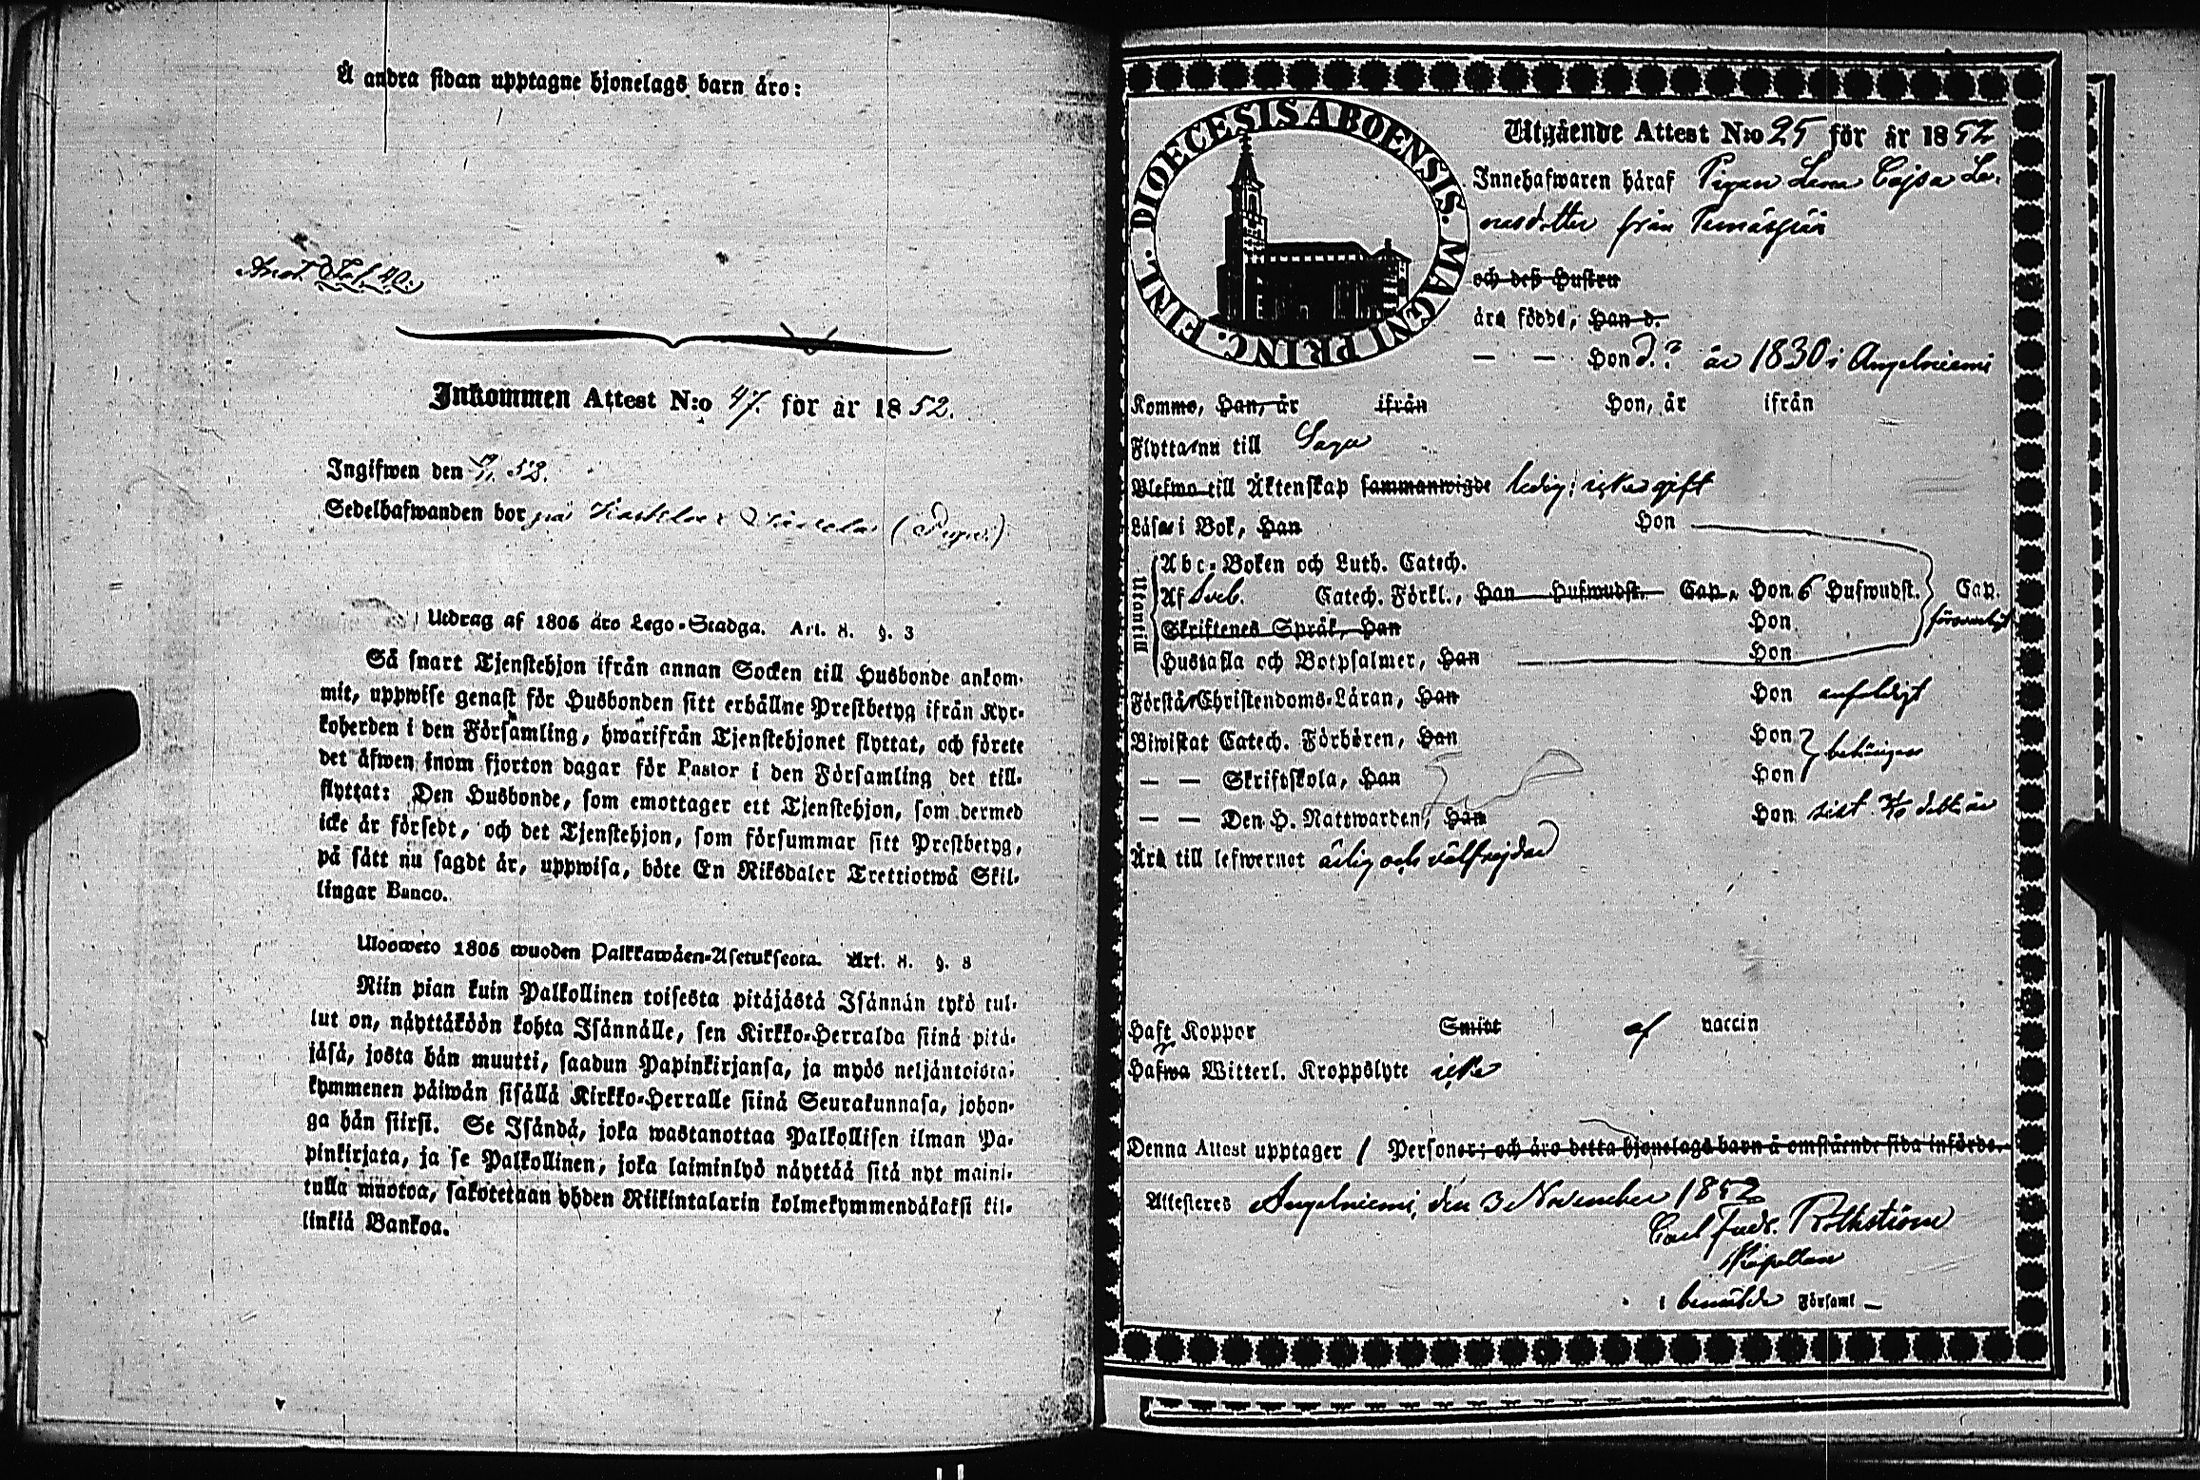 Å andra sidan upptagne hjonelags barn äro:
Fol. 40.
Inkommen Attest N:o 47. för år 1852.
Ingifwen den 52.
Sedelhafwanden bor på
Utdrag af 1805 års Lego-Stadga. Art. 8. §. 3
Så snart Tjenstehjon ifrån annan Socken till Husbonde ankom-
mit, uppwise genast för Husbonden sitt erhållne Prestbetyg ifrån Kyr-
koherden i den Församling, hwarifrån Tjenstehjonet flyttat, och förete
det äfwen inom fjorton dagar för Pastor i den Församling det till-
flyttat: Den Husbonde, som emottager ett Tjenstehjon, som dermed
icke är försedt, och det Tjenstehjon, som försummar sitt Prestbetyg,
på sätt nu sagdt är, uppwisa, böte En Riksdaler Trettiotwå Skil-
lingar Banco.
Ulosweto 1805 wuoden Palkkawäen-Asetuksesta. Art. 8. §. 8
Niin pian kuin Palkollinen toisesta pitäjästä Isännän tykö tul-
lut on, näyttäköön kohta Isännälle, sen Kirkko-Herralda siinä pitä-
jäsä, josta hän muutti, saadun Papinkirjansa, ja myös neljäntoista-
kymmenen päiwän sisällä Kirkko-Herralle siinä Seurakunnasa, johon-
ga hän siirsi. Se Isändä, joka wastanottaa Palkollisen ilman Pa-
pinkirjata, ja se Palkollinen, joka laiminlyö näyttää sitä nyt maini-
tulla muotoa, sakotetaan yhden Riikintalarin kolmekymmendäkaksi kil-
linkiä Bankoa.
DIOECESIS ABOENSIS. MAGNI PRINC. FINL.
Utgående Attest N:o 25 för år 1852
Innehafwaren häraf Pigan Lena Cajsa Le-
nasdotter från
och deß Hustru
äro födde, Han d.
— — Hon d. ? år 1830 i Angelniemi
Komne, Han, år ifrån Hon, år ifrån
Flyttar nu till Sagu
Blefwo till Äktenskap sammanwigde ledig; icke gift
Läsa i Bok, Han Hon
Utantill
Abc-Boken och Luth. Catech.
Af Sveb. Catech. Förkl., Han Hufwudst. Cap., Hon 6 Hufwudst. Cap.
Skriftenes Språk, Han Hon försvarligt
Hustafla och Botpsalmer, Han Hon
Förstår Christendoms-Läran, Han Hon enfaldigt
Biwistat Catech. Förhören, Han Hon behörigen
— — Skriftskola, Han Hon
— — Den H. Nattwarden, Han Hon sist detta år
Äro till lefwernet ärlig och välfrejdad
Haft Koppor Smitt af vaccin
Hafwa Witterl. Kroppslyte icke
Denna Attest upptager 1 Personer; och äro detta hjonelags barn å omstående sida införde.
Attesteres Angelniemi, den 3 November 1852
Carl Fredr. Rothström
Kapellan
i bemälde Församl —